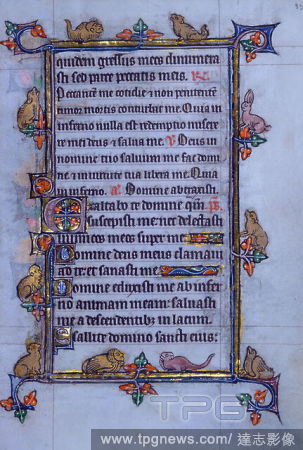 quidem gressus meos dinumera
sti sed parce peccatis meis.
Peccantem me cotidie et non penitentem
timor mortis conturbat me. Quia in
inferno nulla est redemptio misere
re mei deus et salua me. Deus in
nomine tuo saluum me fac domi
ne et in uirtute tua libera me. Quia
in inferno. Domine abstraxisti.
Exaltabo te domine qm
suscepisti me: nec delectasti
inimicos meos super me
Domine deus meus clamaui
ad te: et sanasti me.
Domine eduxisti me ab infer
no animam meam: saluasti
me a descendentibus in lacum.
Psallite domino sancti eius:
TPG
www.tpgnews.com/ 達志影像